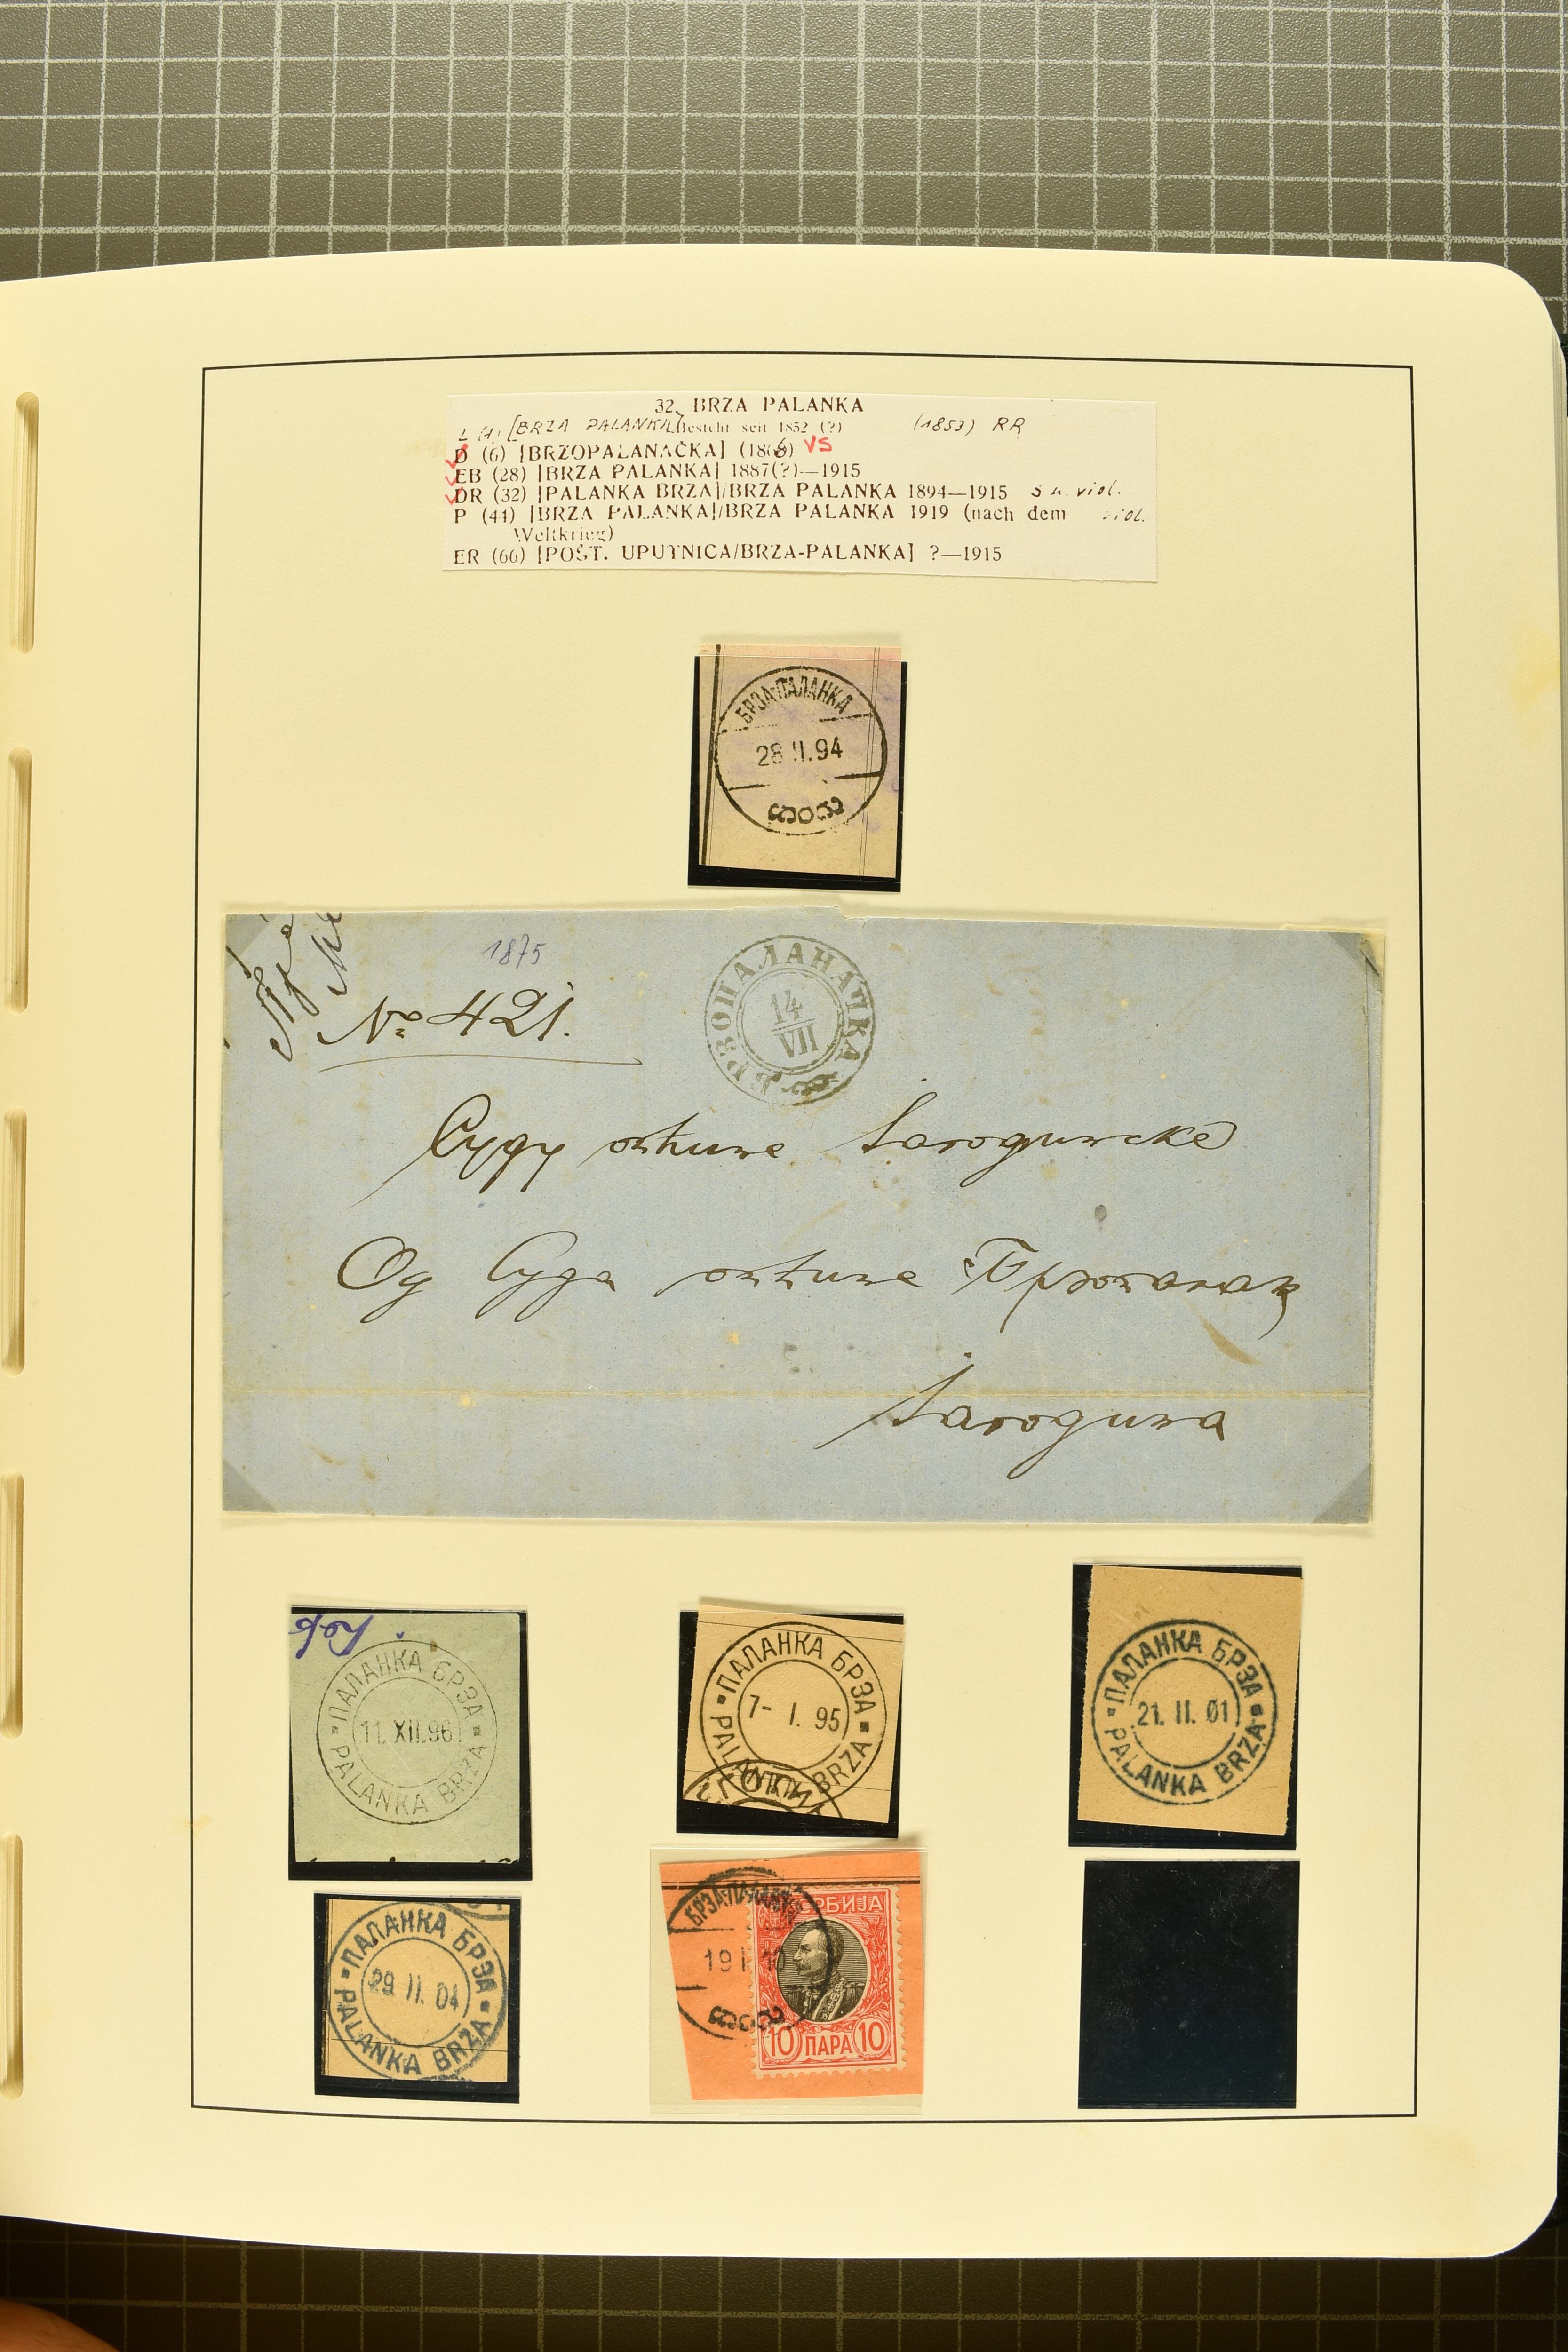 32. BRZA PALANKA
L (1) [BRZA PALANKA] Besteht seit 1852 (?) (1853) RR
D (6) [BRZOPALANAČKA] (1866) VS
EB (28) [BRZA PALANKA] 1887(?)—1915
DR (32) [PALANKA BRZA]/BRZA PALANKA 1894—1915 viol.
P (44) [BRZA PALANKA]/BRZA PALANKA 1919 (nach dem viol.
Weltkrieg)
ER (66) [POŠT. UPUTNICA/BRZA-PALANKA] ?—1915
БРЗА-ПАЛАНКА
28 II.94
1875
№ 421.
БРЗОПАЛАНАЧКА
14
VII
Суду општине Јагодинске
Од Суда општине
Јагодина
ПАЛАНКА БРЗА
11. XII.96
PALANKA BRZA
ПАЛАНКА БРЗА
7- I. 95
PALANKA BRZA
ПАЛАНКА БРЗА
21. II. 01
PALANKA BRZA
ПАЛАНКА БРЗА
29 II. 04
PALANKA BRZA
БРЗА-ПАЛАНКА
19 I 10
СРБИЈА
10 ПАРА 10